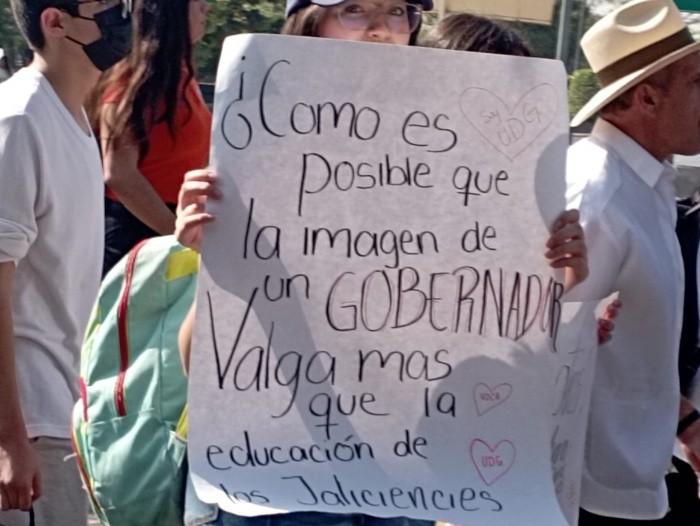 ¿Como es
Soy
UDG
posible que
la imagen de
un GOBERNADOR
Valga mas
que la
UDG
educación de
los Jaliciencies